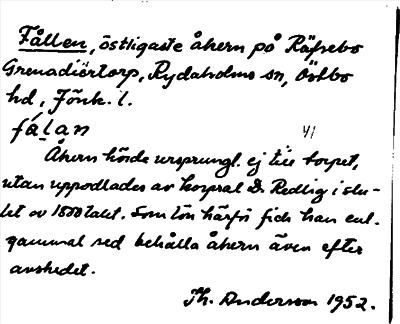 Fållen, östligaste åkern på Räfsebo
Grenadiörtorp, Rydaholms sn, Östbo
hd, Jönk. l.
fá̱la̱n
41
Åkern hörde ursprungl. ej till torpet,
utan uppodlades av korpral D. Redlig i slu-
tet av 1800 talet. Som lön härför fick han enl.
gammal sed behålla åkern även efter
avskedet.
Th. Andersson 1952.